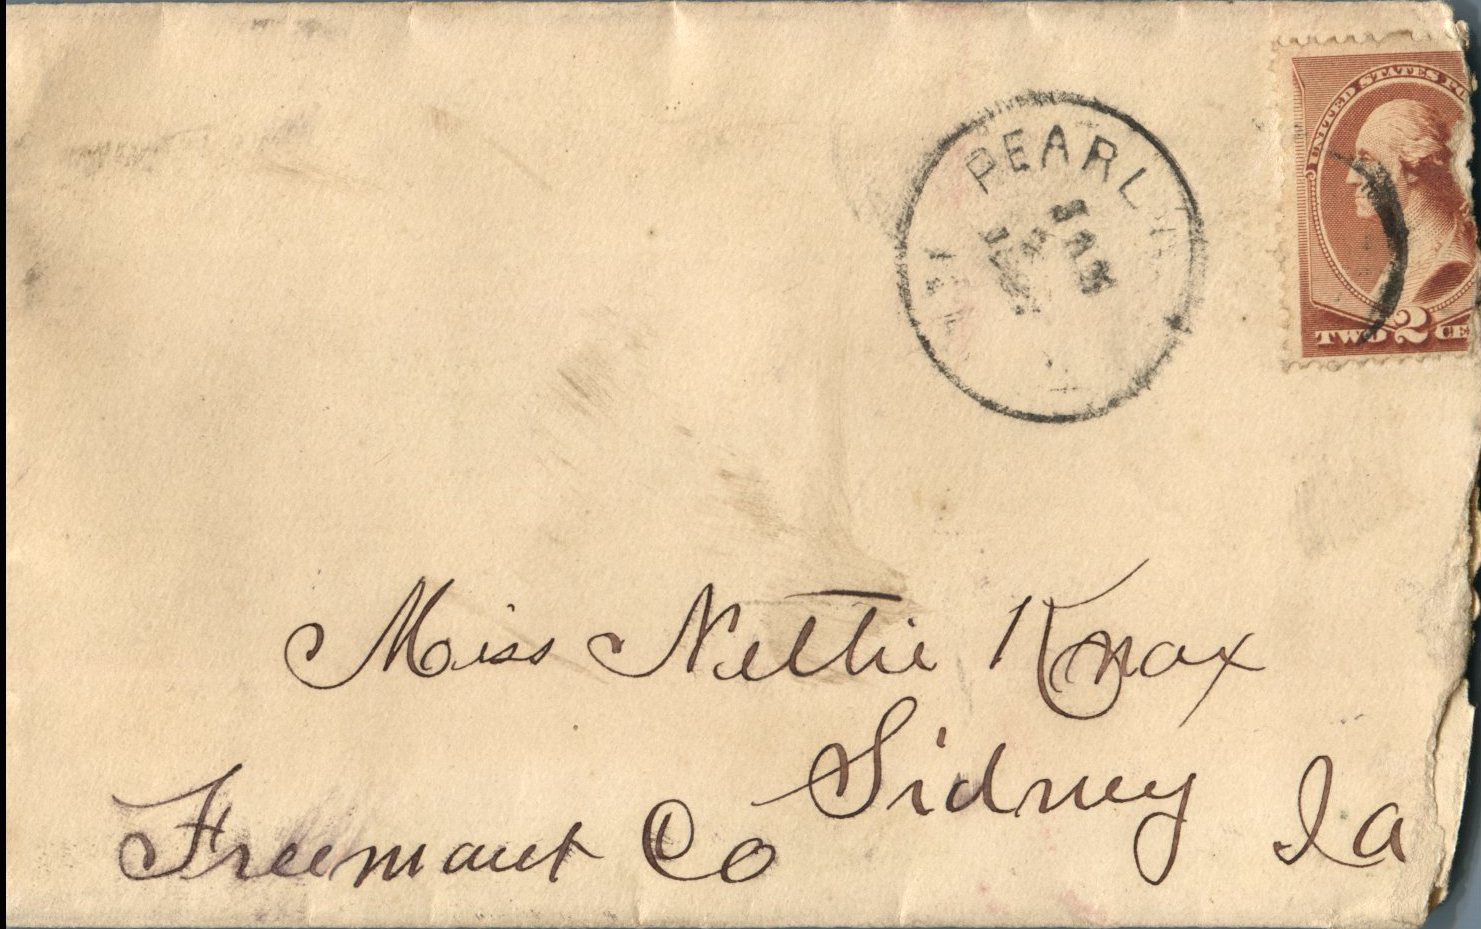 PEARL
JAN
UNITED STATES PO
TWO 2 CE
Miss Nettie Knox
Sidney
Freemont Co Ia